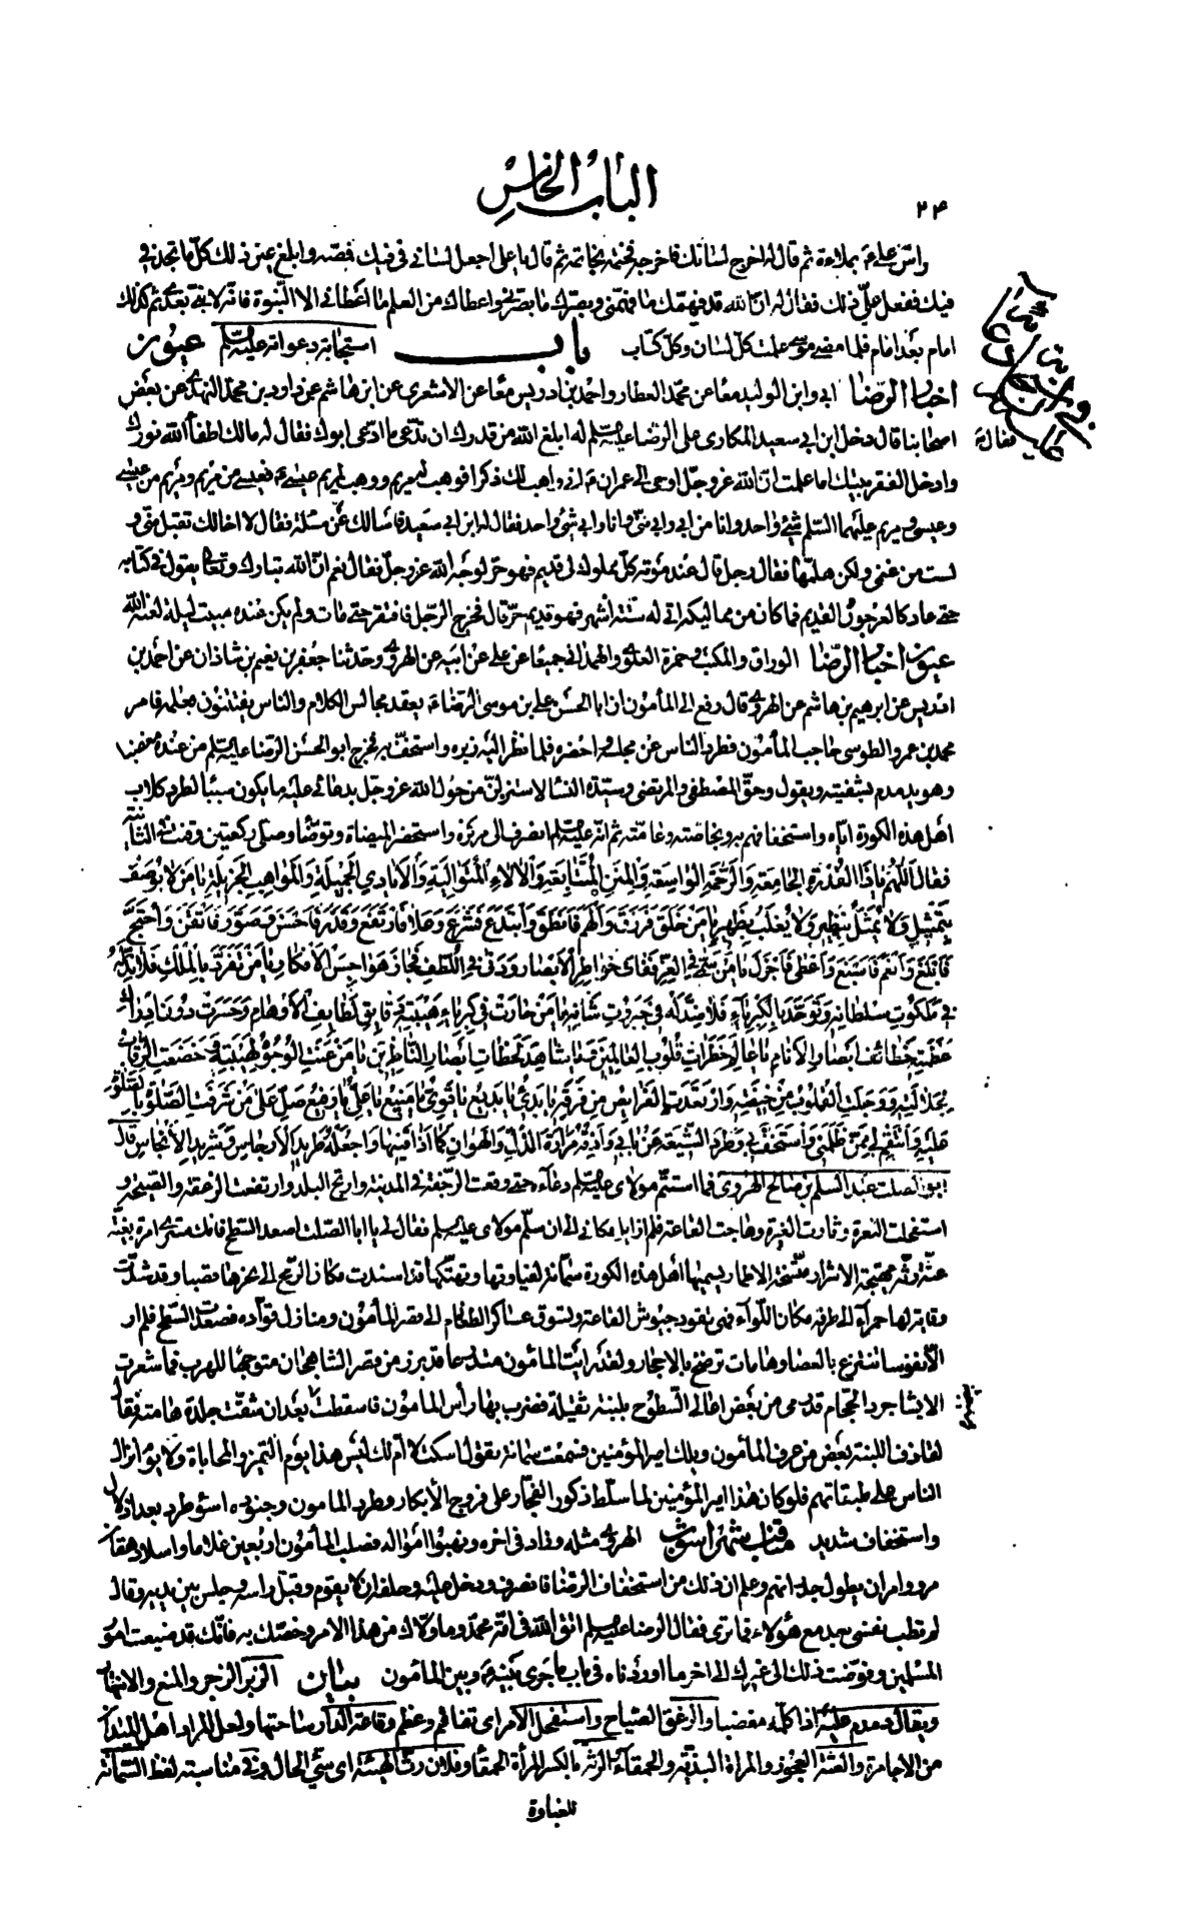 الباب الخامس
۲۴
واس علىّ ع بملاءة ثم قال له اخرج لسانك فاخرجه فختمه بخاتمه ثم قال يا على اجعل لسانى فى فيك فمصّه وابلغ عنى ذلك كلّ ما تجد فى
فيك ففعل علىّ ذلك فقال له انّ الله قد فهّمك ما فهّمنى وبصّرك ما بصّرنى واعطاك من العلم ما اعطانى الا النّبوة فانّه لا نبى بعدى ثم كذلك
امام بعد امام فلما مضى موسى علمت كلّ لسان وكلّ كتاب باب استجابة دعواته عليه السلم عيون
اخبار الرضا ابى وابن الوليد معا عن محمّد العطار واحمد بن ادريس معًا عن الاشعرى عن ابن هاشم عن داود بن محمد النهدى عن بعض
اصحابنا قال دخل ابن ابى سعيد المكارى على الرضا عليه السلم فقال له ابلغ الله من قدرك ان تدّعى ما ادّعى ابوك فقال له مالك اطفأ الله نورك
وادخل الفقر بيتك اما علمت انّ الله عزّ وجلّ اوحى الى عمران ع انى واهب لك ذكرا فوهب له مريم ووهب لمريم عيسى ع فعيسى من مريم ومريم من عيسى
وعيسى ومريم عليهما السّلم شئ واحد وانا من ابى وابى منّى وانا وابى شئ واحد فقال له ابن ابى سعيد فاسالك عن مسئلة فقال لا اخالك تقبل منّى و
لست من غنمى ولكن هلمّها فقال رجل قال عند موته كلّ مملوك لى قديم فهو حرّ لوجه الله عزّ وجلّ فقال نعم انّ الله تبارك وتعالى يقول فى كتابه
حتى عاد كالعرجون القديم فما كان من مماليكه اتى له ستة اشهر فهو قديم حرّ قال فخرج الرّجل فافتقر حتى مات ولم يكن عنده مبيت ليلة لعنه الله
عيون اخبار الرضا الوراق والمكتب وحمزة العلوى والهمدانى جميعًا عن على عن ابيه عن الهروى وحدثنا جعفر بن نعيم بن شاذان عن احمد بن
ادريس عن ابرهيم بن هاشم عن الهروى قال رفع الى المأمون ان ابا الحسن على بن موسى الرضا ع يعقد مجالس الكلام والناس يفتتنون بعلمه فامر
محمد بن عمرو الطوسى حاجب المأمون فطرد الناس عن مجلسه واحضره فلما نظر اليه زبره واستخفّ به فخرج ابو الحسن الرضا عليه السلم من عنده مغضبا
وهو يدمدم بشفتيه ويقول وحقّ المصطفى والمرتضى وسيّدة النسا لاستنزلنّ من حول الله عزّ وجلّ بدعائى عليه ما يكون سببًا لطرد كلاب
اهل هذه الكورة ايّاه واستخفافهم به وبخاصّته وعامّته ثم انّه عليه السلم انصرف الى مركزه واستحضر الميضاة وتوضّا وصلّى ركعتين وقنت فى الثانية
فقال اللّهمّ يا ذا القدرة الجامعة والرّحمة الواسعة والمنن المتتابعة والآلاء المتوالية والايادى الجميلة والمواهب الجزيلة يا من لا يوصف
بتمثيل ولا يمثّل بنظير ولا يغلب بظهير يا من خلق فرزق والهم فانطق وابتدع فشرع وعلا فارتفع وقدّر فاحسن وصوّر فاتقن واحتجّ
فابلغ وانعم فاسبغ واعطى فاجزل يا من سما فى العزّ ففات خواطر الابصار ودنا فى اللّطف فجاز هواجس الافكار يا من تفرّد بالملك فلا ندّ له
فى ملكوت سلطانه وتوحّد بالكبرياء فلا ضدّ له فى جبروت شانه يا من حارت فى كبرياء هيبته دقايق لطايف الاوهام وحسرت دون ادراك
عظمته خطائف ابصار الانام يا عالم خطرات قلوب العالمين ويا شاهد لحظات ابصار النّاظرين يا من عنت الوجوه لهيبته وخضعت الرّقاب
لجلالته ووجلت القلوب من خيفته وارتعدت الفرايص من فرقه يا بدئ يا بديع يا قوىّ يا منيع يا علىّ يا رفيع صلّ على من شرّفت الصّلوة بالصّلوة
عليه وانتقم لى ممّن ظلمنى واستخفّ بى وطرد الشّيعة عن بابى واذقه مرارة الذّلّ والهوان كما اذاقنيها واجعله طريد الارجاس وشريد الانجاس قال
ابو الصلت عبد السلم بن صالح الهروى فما استتمّ مولاى عليه السلم دعاءه حتى وقعت الرّجفة فى المدينة وارتجّ البلد وارتفعت الزعقة والصّيحة و
استفحلت النعرة وثارت الغبرة وهاجت القاعة فلم ازايل مكانى الى ان سلّم مولاى عليه السلم فقال لى يا ابا الصّلت اصعد السّطح فانك سترى امراة بغيّة
عثّة رثّة مهيّجة الاشرار متّسخة الاطمار يسمّيها اهل هذه الكورة سمّانة لغباوتها وتهتّكها قد اسندت مكان الرّمح الى نحرها قصبا وقد شدّت
وقاية لها حمراء الى طرفه مكان اللّواء فهى تقود جيوش القاعة وتسوق عساكر الطغام الى قصر المأمون ومنازل قوّاده فصعدت السّطح فلم ار
الّا نفوسا تنتزع بالعصا وهامات ترضخ بالاحجار ولقد رايت المامون متدرعا قد برز من قصر الشاهجان متوجّها للهرب فما شعرت
الا بشاجرد الحجّام قد رمى من بعض اعالى السّطوح بلبنة ثقيلة فضرب بها راس المامون فاسقطت بيضته بعد ان شقّت جلدة هامته فقال
لقاذف اللبنة بعض من عرف المأمون ويلك امير المؤمنين فسمعت سمانة تقول اسكت لا ام لك ليس هذا يوم التميّز والمحاباة ولا يوم انزال
الناس على طبقاتهم فلو كان هذا امير المؤمنين لما سلّط ذكور الفجّار على فروج الابكار وطرد المامون وجنوده اسوء طرد بعد اذلال
واستخفاف شديد مناقب لشهر اشوب الهروى مثله وزاد فى اخره ونهبوا امواله فصلب المأمون اربعين غلاما واسلا دهقان
مرو وامر ان يطول جدرانهم وعلم ان ذلك من استخفاف الرضا فانصرف ودخل عليه وحلفه ان لا يقوم وقبّل راسه وجلس بين يديه وقال
لم تطب نفسى بعد مع هؤلاء فما ترى فقال الرضا عليه السلم اتق الله فى امّة محمّد وما ولّاك من هذا الامر وخصّك به فانّك قد ضيعت امور
المسلمين وفوّضت ذلك الى غيرك الى اخر ما اوردناه فى باب ما جرى بينه وبين المامون بيان الزبر الزجر والمنع والانتهار
ويقال دمدم عليه اذا كلّمه مغضبا والزعق الصّياح واستفحل الامر اى تفاقم وعظم وقاعة الدار ساحتها ولعلّ المراد اهل الميدان
من الاجامرة والعثّة العجوز والمراة البذيّة والحمقاء والرّثّة بالكسر المرأة الحمقا وفلان رثّ الهيئة اى سيّئ الحال وفى مناسبة لفظ السّمانة
للغباوة